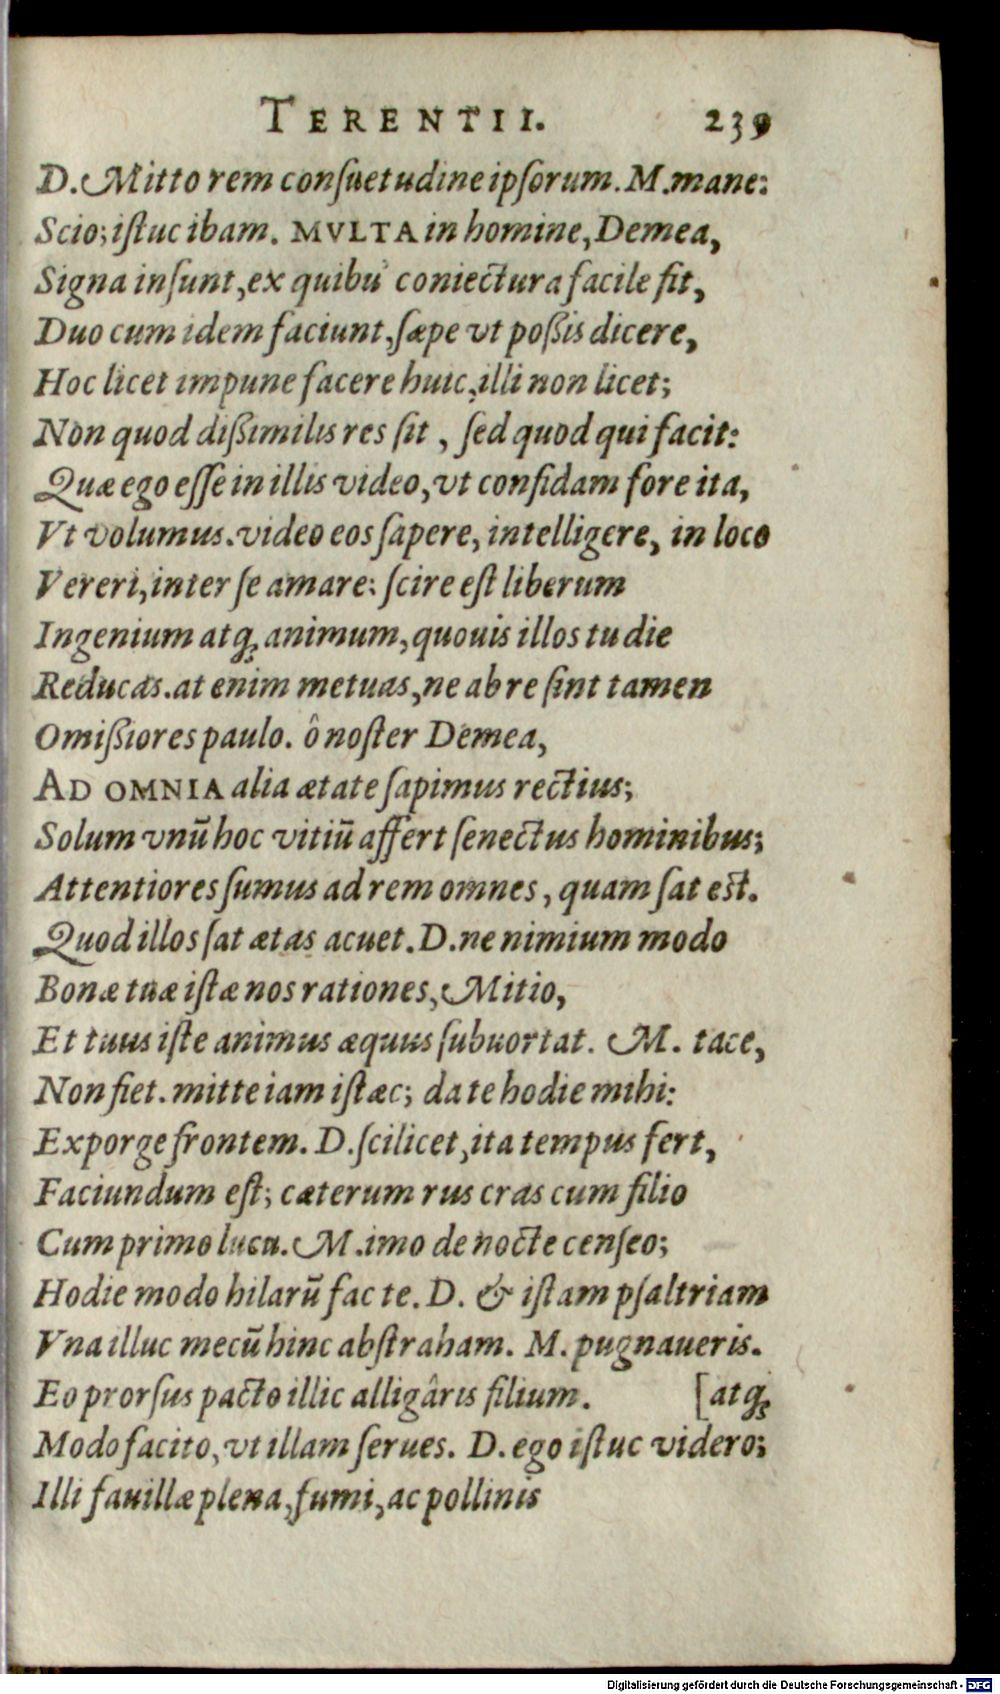 TERENTII. 239
D. Mitto rem consuetudine ipsorum. M. mane:
Scio; istuc ibam. MVLTA in homine, Demea,
Signa insunt, ex quibu' coniectura facile fit,
Duo cum idem faciunt, sæpe vt poßis dicere,
Hoc licet impune facere huic, illi non licet;
Non quod dißimilis res sit, sed quod qui facit:
Quæ ego esse in illis video, vt confidam fore ita,
Vt volumus. video eos sapere, intelligere, in loco
Vereri, inter se amare: scire est liberum
Ingenium atq; animum, quouis illos tu die
Reducas. at enim metuas, ne ab re sint tamen
Omißiores paulo. ô noster Demea,
AD OMNIA alia ætate sapimus rectius;
Solum vnũ hoc vitiũ affert senectus hominibus;
Attentiores sumus ad rem omnes, quam sat est.
Quod illos sat ætas acuet. D. ne nimium modo
Bonæ tuæ istæ nos rationes, Mitio,
Et tuus iste animus æquus subuortat. M. tace,
Non fiet. mitte iam istæc; da te hodie mihi:
Exporge frontem. D. scilicet, ita tempus fert,
Faciundum est; cæterum rus cras cum filio
Cum primo lucu. M. imo de nocte censeo;
Hodie modo hilarũ fac te. D. & istam psaltriam
Vna illuc mecũ hinc abstraham. M. pugnaueris.
Eo prorsus pacto illic alligâris filium. [atq;
Modo facito, vt illam serues. D. ego istuc videro;
Illi fauillæ plena, fumi, ac pollinis
Digitalisierung gefördert durch die Deutsche Forschungsgemeinschaft - DFG